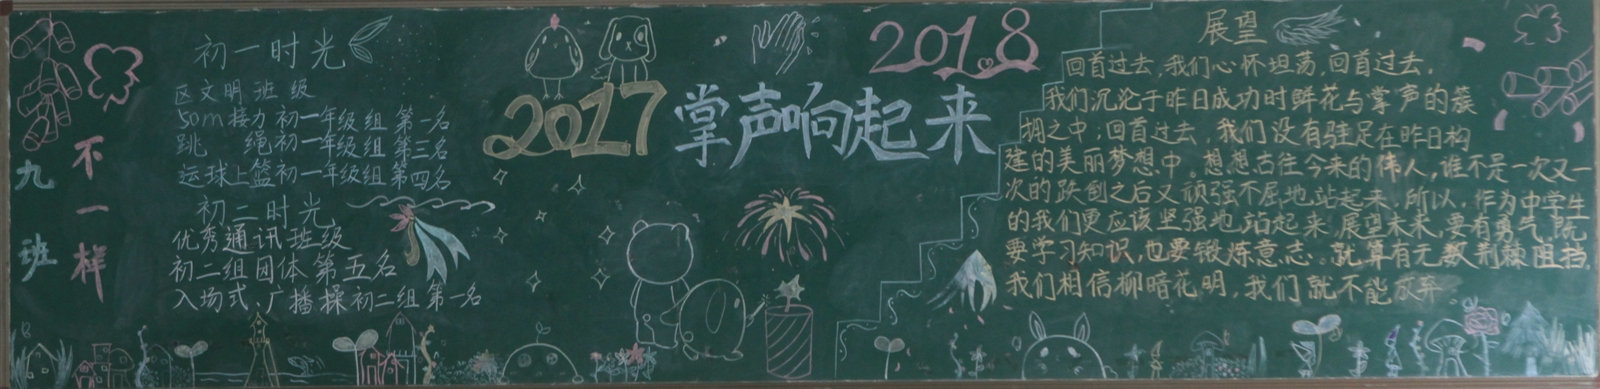 九班
不一样
初一时光
区文明班级
50m接力初一年级组 第一名
跳 绳初一年级组 第三名
运球上篮初一年级组第四名
初二时光
优秀通讯班级
初二组团体第五名
入场式、广播操初二组第一名
2017
掌声响起来
2018
展望
回首过去,我们心怀坦荡,回首过去,
我们沉沦于昨日成功时鲜花与掌声的簇
拥之中;回首过去,我们没有驻足在昨日构
建的美丽梦想中。想想古往今来的伟人,谁不是一次又一
次的跌倒之后又顽强不屈地站起来,所以,作为中学生
的我们更应该坚强地站起来,展望未来,要有勇气,既
要学习知识,也要锻炼意志。就算有无数荆棘阻挡
我们相信柳暗花明,我们就不能放弃